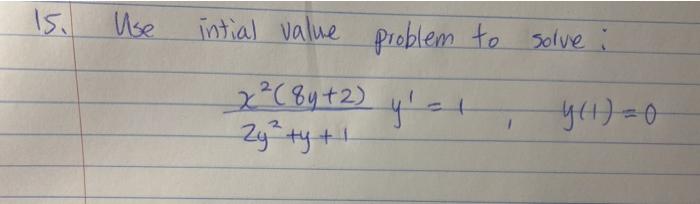 15. Use intial value problem to solve :
x²(8y+2) / 2y²+y+1 y' = 1 , y(1) = 0